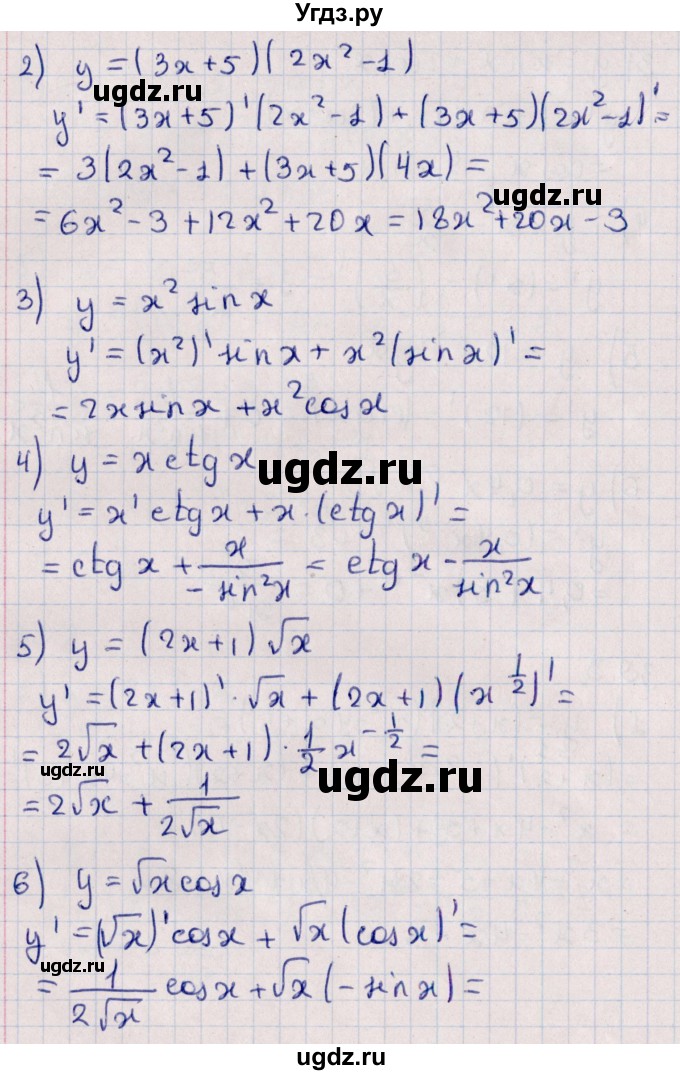 Угдз.ру
2) y = (3x+5)(2x²-1)
ugdz.ru
y' = (3x+5)'(2x²-1) + (3x+5)(2x²-1)' =
= 3(2x²-1) + (3x+5)(4x) =
ugdz.ru
= 6x² - 3 + 12x² + 20x = 18x² + 20x - 3
3) y = x² sin x
y' = (x²)' sin x + x² (sin x)' =
= 2x sin x + x² cos x
4) y = x ctg x
ugdz.ru
y' = x' ctg x + x · (ctg x)' =
= ctg x + x/(-sin²x) = ctg x - x/(sin²x)
5) y = (2x+1) √x
y' = (2x+1)' · √x + (2x+1)(x^(1/2))' =
= 2√x + (2x+1) · 1/2 x^(-1/2) =
ugdz.ru
ugdz.ru
= 2√x + 1/(2√x)
6) y = √x cos x
y' = (√x)' cos x + √x (cos x)' =
ugdz.ru
ugdz.ru
= 1/(2√x) cos x + √x (-sin x) =
ugdz.ru